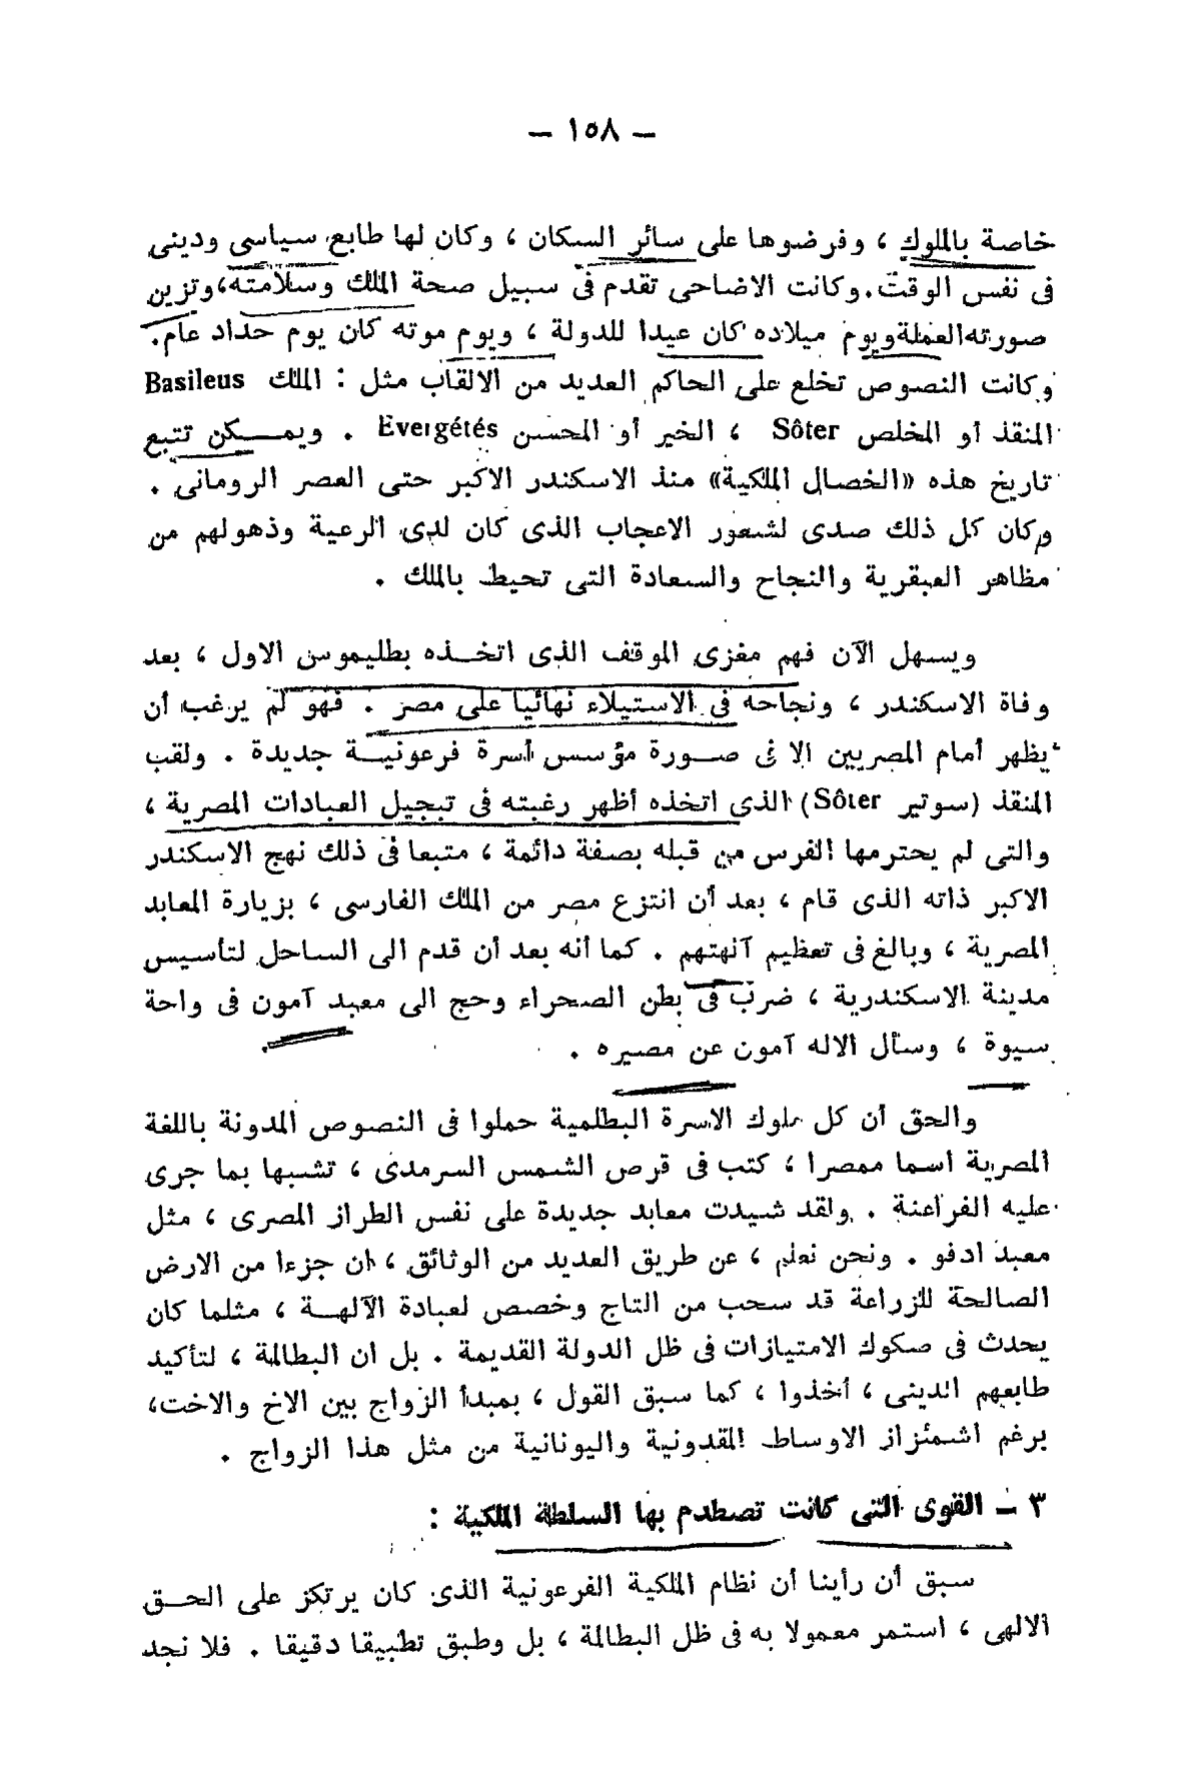 — ١٥٨ —
خاصة بالملوك ، وفرضوها على سائر السكان ، وكان لها طابع سياسى ودينى
فى نفس الوقت . وكانت الاضاحى تقدم فى سبيل صحة الملك وسلامته ، وتزين
صورته العملة ويوم ميلاده كان عيدا للدولة ، ويوم موته كان يوم حداد عام .
وكانت النصوص تخلع على الحاكم العديد من الالقاب مثل : الملك Basileus
المنقذ أو المخلص Sôter ، الخير أو المحسن Evergétés . ويمــكن تتبع
تاريخ هذه «الخصال الملكية» منذ الاسكندر الاكبر حتى العصر الرومانى .
وكان كل ذلك صدى لشعور الاعجاب الذى كان لدى الرعية وذهولهم من
مظاهر العبقرية والنجاح والسعادة التى تحيط بالملك .
ويسهل الآن فهم مغزى الموقف الذى اتخــذه بطليموس الاول ، بعد
وفاة الاسكندر ، ونجاحه فى الاستيلاء نهائيا على مصر . فهو لم يرغب أن
يظهر أمام المصريين الا فى صــورة مؤسس أسرة فرعونيــة جديدة . ولقب
المنقذ (سوتير Sôter) الذى اتخذه أظهر رغبته فى تبجيل العبادات المصرية ،
والتى لم يحترمها الفرس من قبله بصفة دائمة ، متبعا فى ذلك نهج الاسكندر
الاكبر ذاته الذى قام ، بعد أن انتزع مصر من الملك الفارسى ، بزيارة المعابد
المصرية ، وبالغ فى تعظيم آلهتهم . كما أنه بعد أن قدم الى الساحل لتأسيس
مدينة الاسكندرية ، ضرب فى بطن الصحراء وحج الى معبد آمون فى واحة
سيوة ، وسأل الاله آمون عن مصيره .
والحق أن كل ملوك الاسرة البطلمية حملوا فى النصوص المدونة باللغة
المصرية اسما ممصرا ، كتب فى قرص الشمس السرمدى ، تشبها بما جرى
عليه الفراعنة . ولقد شيدت معابد جديدة على نفس الطراز المصرى ، مثل
معبد ادفو . ونحن نعلم ، عن طريق العديد من الوثائق ، ان جزءا من الارض
الصالحة للزراعة قد سحب من التاج وخصص لعبادة الآلهــة ، مثلما كان
يحدث فى صكوك الامتيازات فى ظل الدولة القديمة . بل ان البطالمة ، لتأكيد
طابعهم الدينى ، أخذوا ، كما سبق القول ، بمبدأ الزواج بين الاخ والاخت ،
برغم اشمئزاز الاوساط المقدونية واليونانية من مثل هذا الزواج .
٣ ــ القوى التى كانت تصطدم بها السلطة الملكية :
سبق أن رأينا أن نظام الملكية الفرعونية الذى كان يرتكز على الحــق
الالهى ، استمر معمولا به فى ظل البطالمة ، بل وطبق تطبيقا دقيقا . فلا نجد